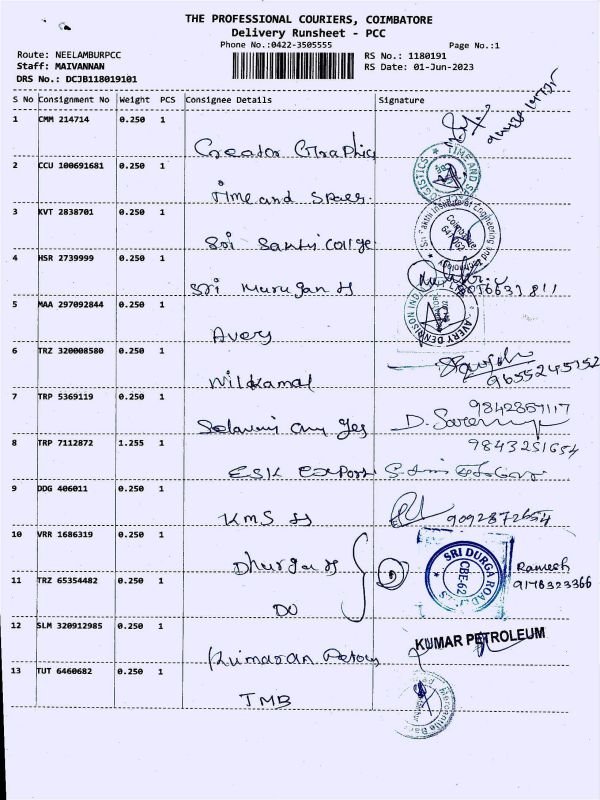 THE PROFESSIONAL COURIERS, COIMBATORE
Delivery Runsheet - PCC
Phone No.:0422-3505555 Page No.:1
Route: NEELAMBURPCC RS No.: 1180191
Staff: MAIVANNAN RS Date: 01-Jun-2023
DRS No.: DCJB118019101
S No Consignment No Weight PCS Consignee Details Signature
1 CMM 214714 0.250 1
Creator Graphics
2 CCU 100691681 0.250 1
Time and Space
3 KVT 2838701 0.250 1
Sri Sakthi College
4 HSR 2739999 0.250 1
Sri Murugan
5 MAA 297092844 0.250 1
Avery AVERY DENNISON IND
6 TRZ 320008580 0.250 1
Nilkamal 9655245152
7 TRP 5369119 0.250 1
9842867117
8 TRP 7112872 1.255 1 9843251654
ESK Export
9 DDG 406011 0.250 1
KMS 9092872654
10 VRR 1686319 0.250 1
Dhurga SRI DURGA ROAD CBE-62 Ramesh
11 TRZ 65354482 0.250 1 9176323366
DO
12 SLM 320912985 0.250 1
KUMAR PETROLEUM
Kumaran
13 TUT 6460682 0.250 1
TMB